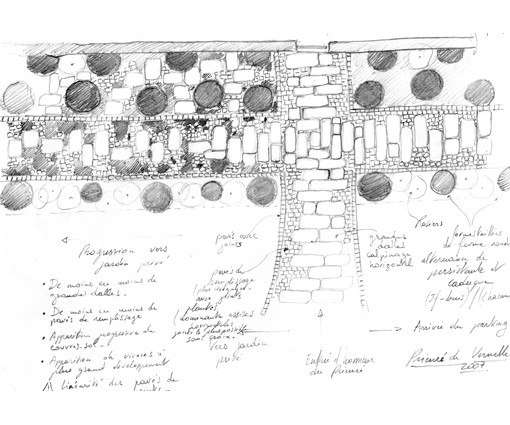 Progression vers
jardin privé
• De moins en moins de
grandes dalles.
• De moins en moins de
pavés de remplissage
• Apparition progressive de
couvre-sol.
• Apparition de vivaces à
plus grand développement
/!\ linéarité des pavés de
pavés avec
joints
pavés de
remplissage
avec joints
plantés
(dominante assises
vers jardin
privé
Entrée d'honneur
du Prieuré
grandes
dalles
calepinage
horizontal
Rosiers
de forme ronde
alternance de
persistants et
caducs
(If-buis) //
→ Arrivée du parking
Prieuré de Vernelle
2007.